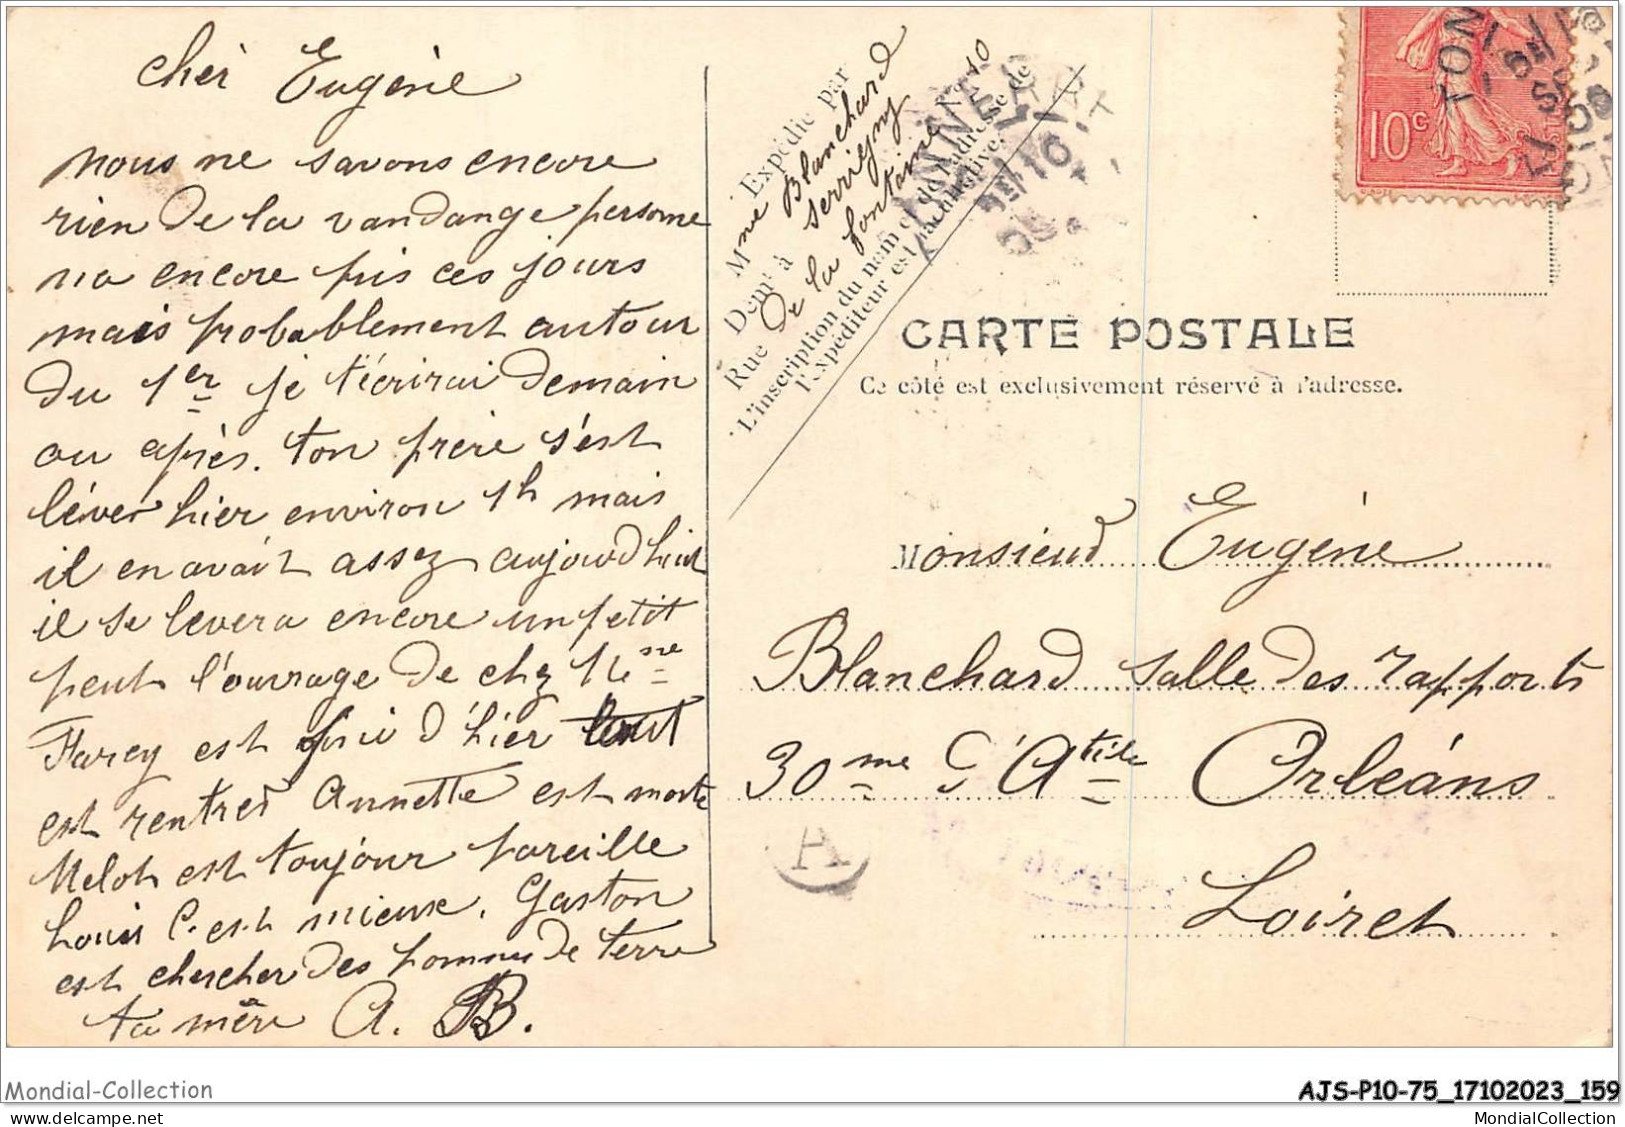 cher Eugène
nous ne savons encore
rien de la vandange persome
na encore pris ces jours
mais probablement autour
du 1er je t'écrirai demain
ou après. ton frère s'est
léver hier environ 1h mais
il en avait assez aujourdhui
il se levera encore un petit
peut l'ouvrage de chez Mme
Farcy est fini d'hier tout
est rentrer Annette est morte
Melot est toujour pareille
Louis C. est mieux. Gaston
est chercher des pommes de terre
ta mère A. B.
Expédié par
Mme Blanchard
Demt à serrigny
Rue de la fontaine No 10
L'inscription du nom et de l'adresse de
l'expéditeur est facultative.
TON
10c
CARTE POSTALE
Ce côté est exclusivement réservé à l'adresse.
Monsieur Eugène
Blanchard salle des rapports
30me d'Atile Orléans
A
Loiret
Mondial-Collection
AJS-P10-75_17102023_159
MondialCollection